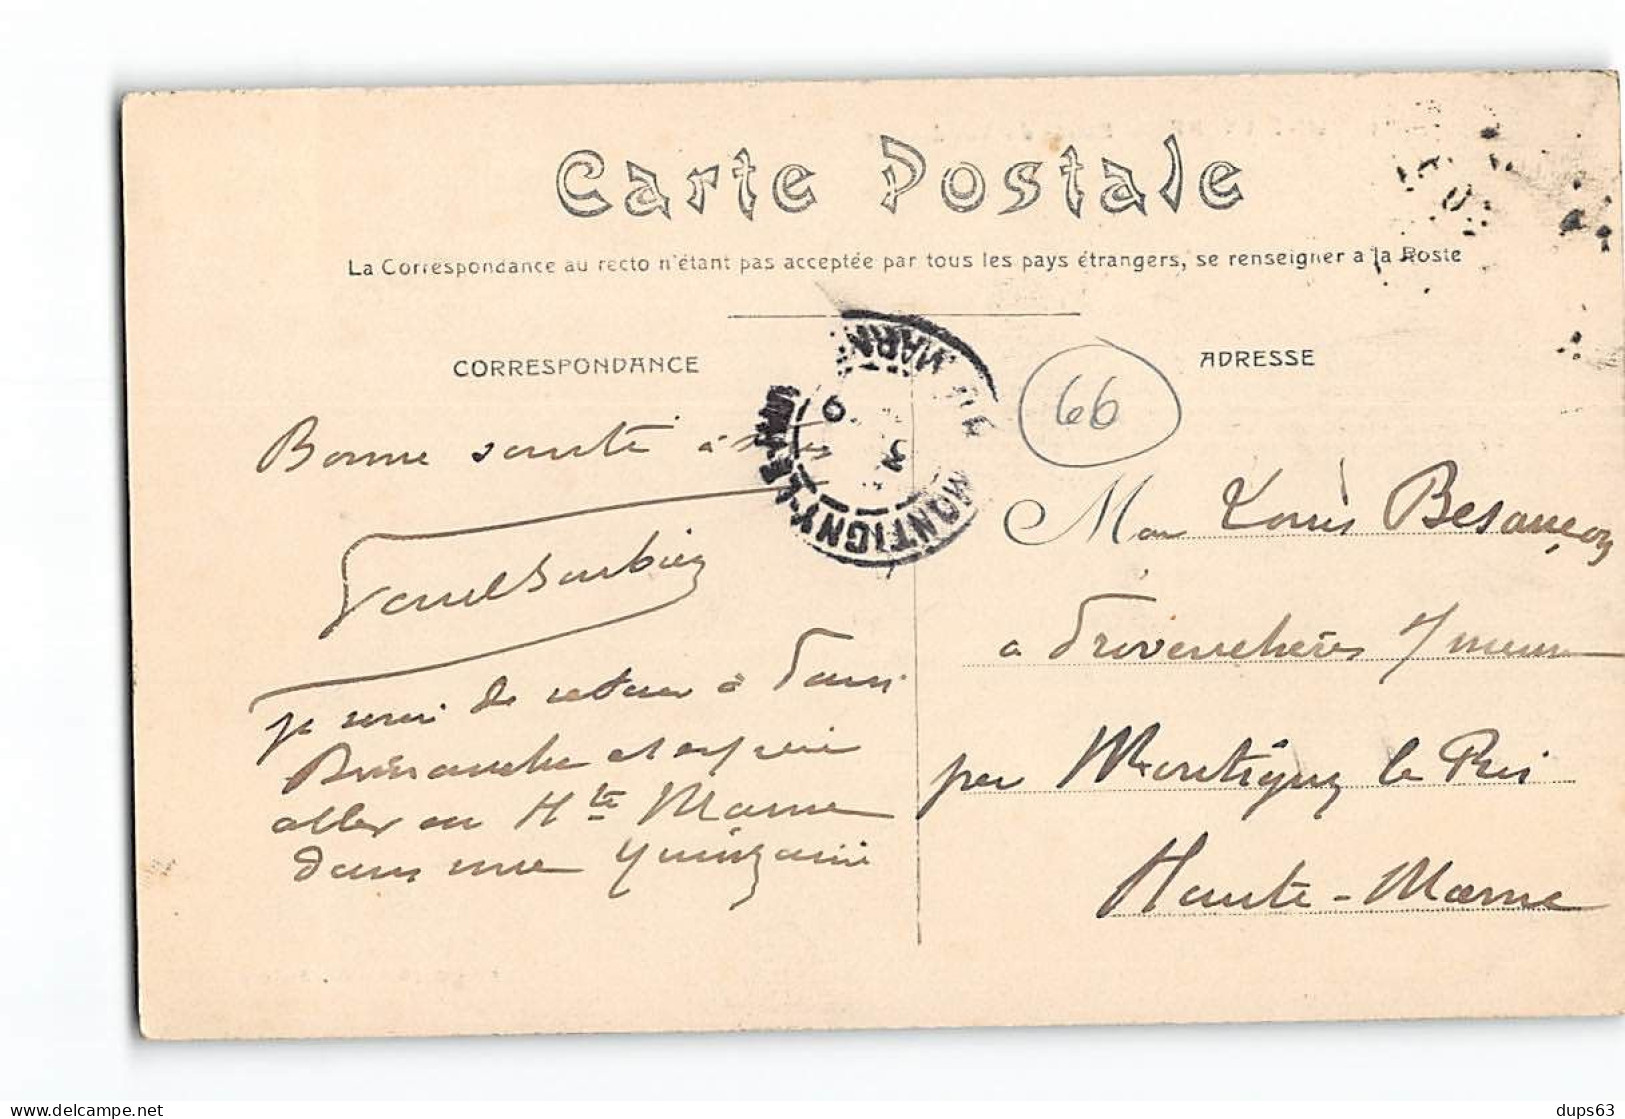 Carte Postale
La Correspondance au recto n'étant pas acceptée par tous les pays étrangers, se renseigner a la Poste
CORRESPONDANCE
ADRESSE
66
MONTIGNY-LE-ROI
Bonne santé à
Mon Louis Besançon
a Provenchères s/ meuse
je serai de retour à Paris
Dimanche et espère
per Montigny le Roi
aller en Hte Marne
dans une quinzaine
Haute-Marne
delcampe.net
dups63